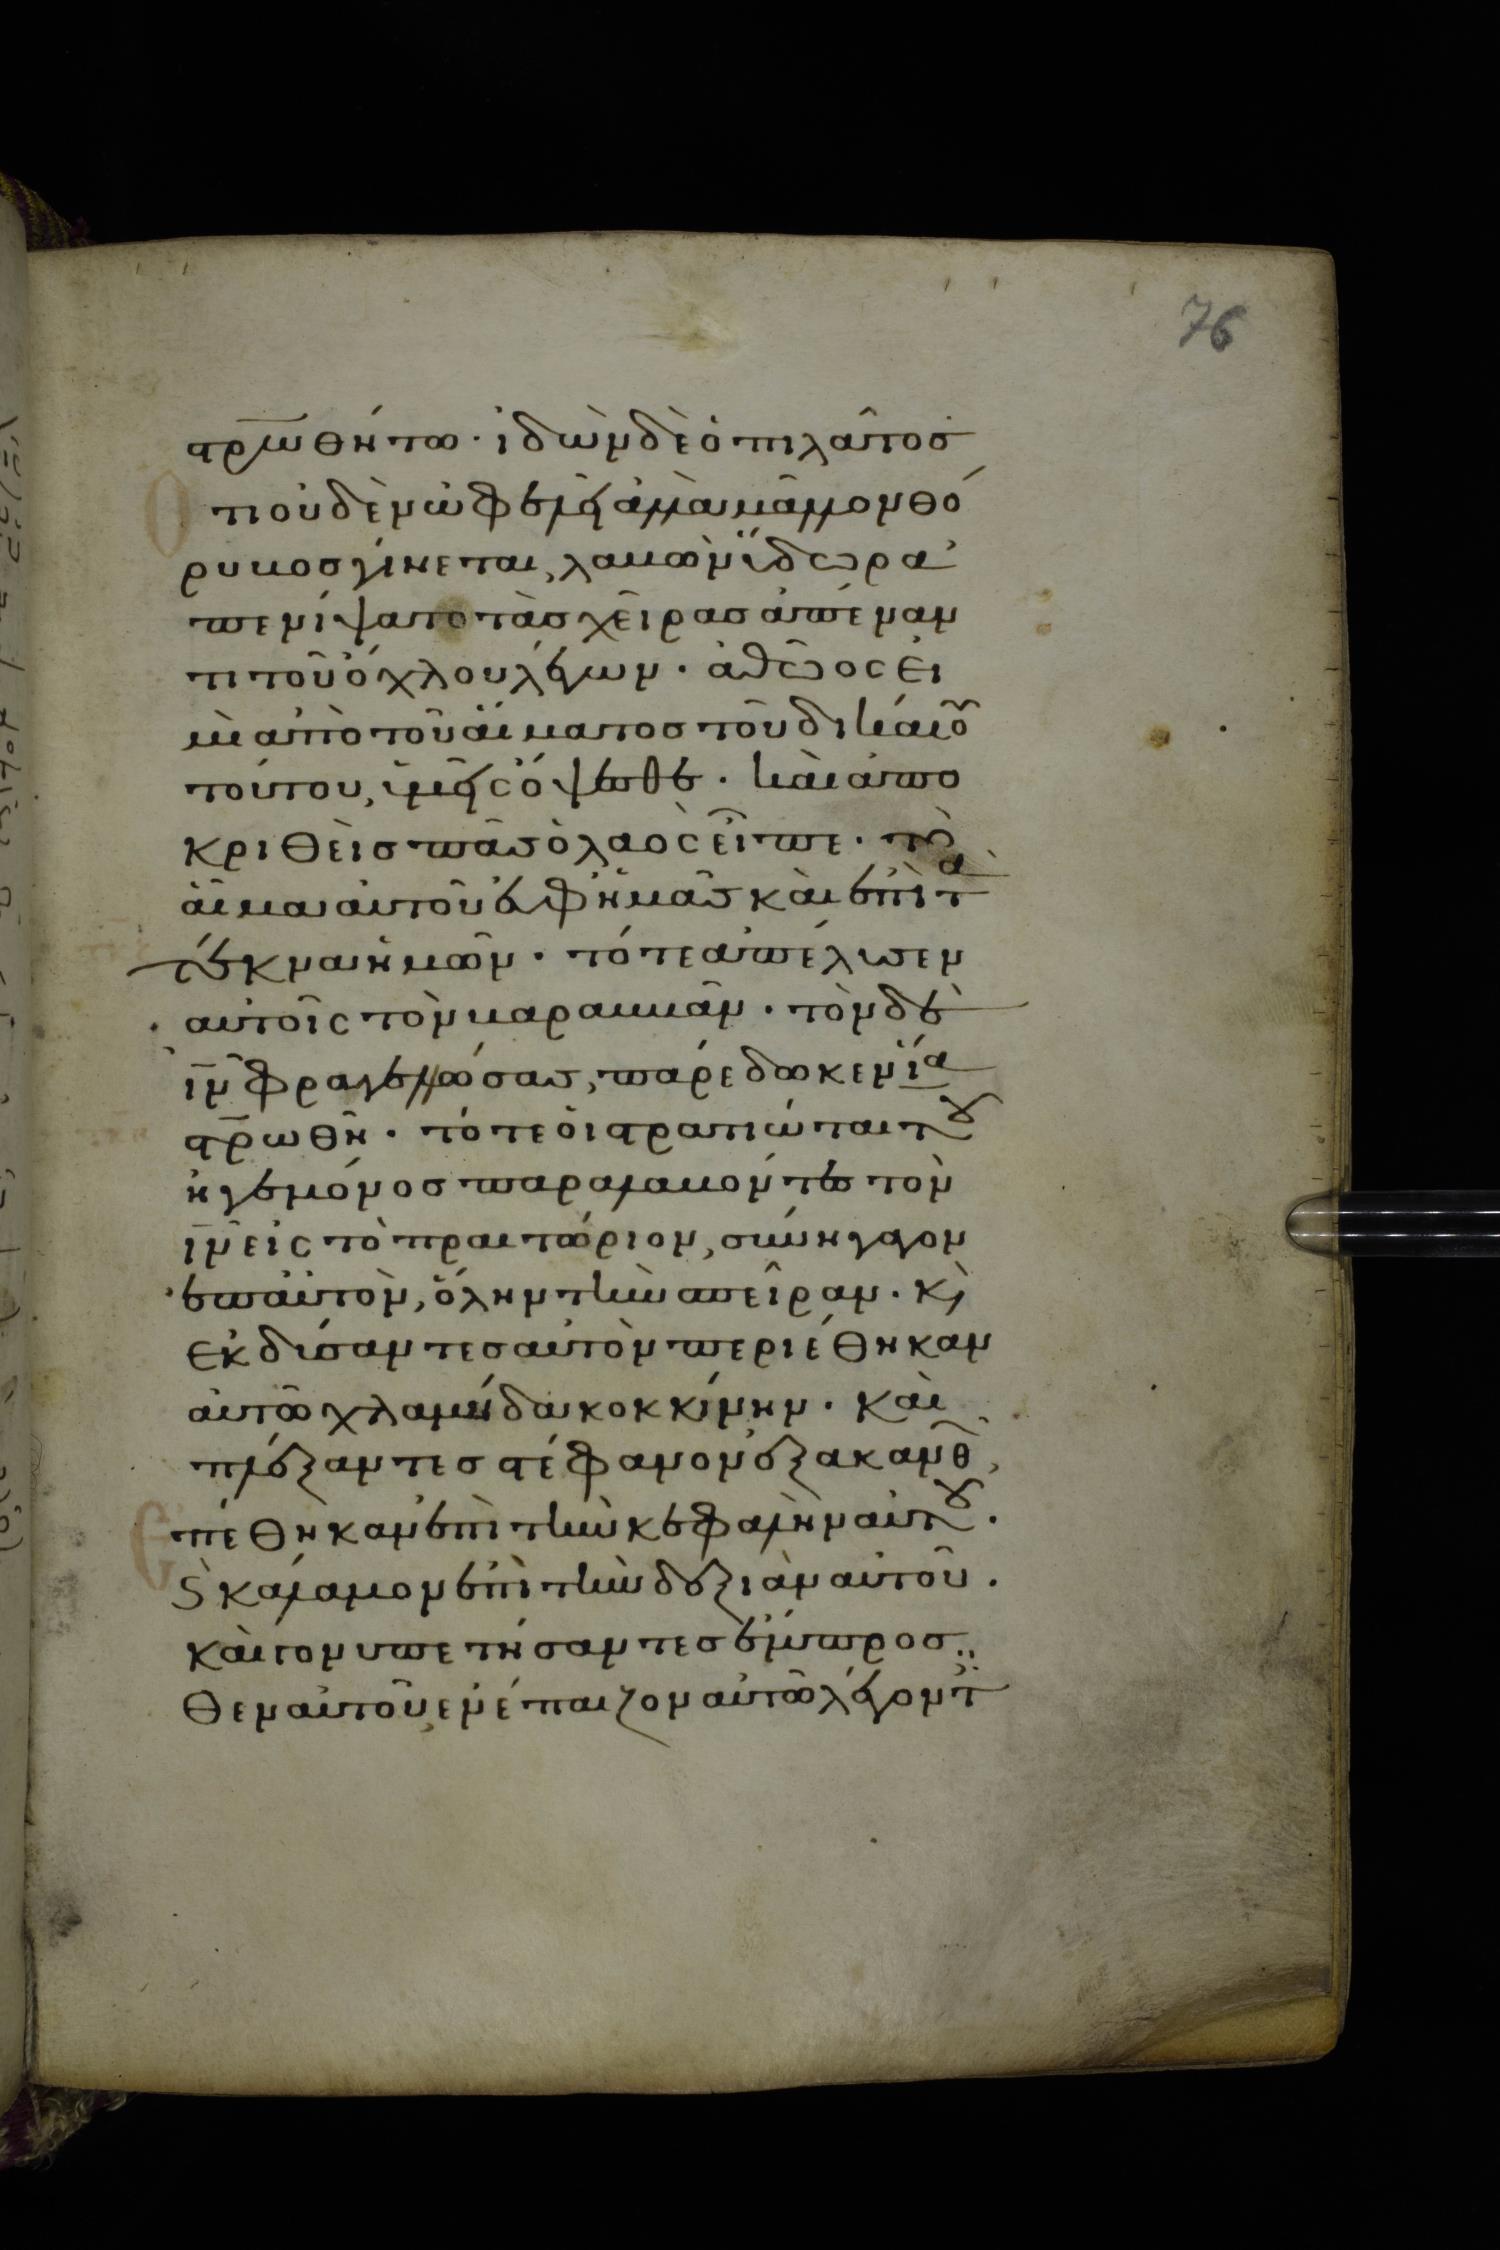 76
στρ̅ωθήτω· ἰδὼν δὲ ὁ πιλᾶτος
Ὅτι οὐδὲν ὠφελεῖ ἀλλὰ μᾶλλον θό
ρυβος γίνεται, λαβὼν ὕδωρ ἀ
πενίψατο τὰς χεῖρας ἀπέναν
τι τοῦ ὄχλου λέγων· ἀθῶος εἰ
μὶ ἀπὸ τοῦ αἵματος τοῦ δικαίου
τούτου, ὑμεῖς ὄψεσθε· καὶ ἀπο
κριθεὶς πᾶς ὁ λαὸς εἶπε· τὸ
αἷμα αὐτοῦ ἐφ ἡμᾶς καὶ ἐπὶ τὰ
τέκνα ἡμῶν· τότε ἀπέλυσεν
αὐτοῖς τὸν βαραββᾶν· τὸν δὲ
ι̅ν̅ φραγελλώσας, παρέδωκεν ἵνα
στ̅ρ̅ωθῆ· τότε οἱ στρατιῶται τοῦ
ἡγεμόνος παραλαβόντες τὸν
ι̅ν̅ εἰς τὸ πραιτώριον, συνήγαγον
ἐπ αὐτὸν, ὅλην τὴν σπεῖραν· κ̀
ἐκδύσαντες αὐτὸν περιέθηκαν
αὐτῶ χλαμύδα κοκκίνην· καὶ
πλέξαντες στέφανον ἐξ ἀκανθ,
Ἐπέθηκαν ἐπὶ τὴν κεφαλὴν αὐτοῦ·
ϛ̀ κάλαμον ἐπὶ τὴν δεξιὰν αὐτοῦ·
καὶ γονυπετήσαντες ἔμπροσ
θεν αὐτοῦ, ἐνέπαιζον αὐτῶ λέγοντ